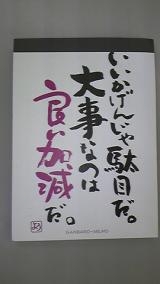 いいかげんじゃ駄目だ。
大事なのは
良い加減だ。
GANBARO-MEMO